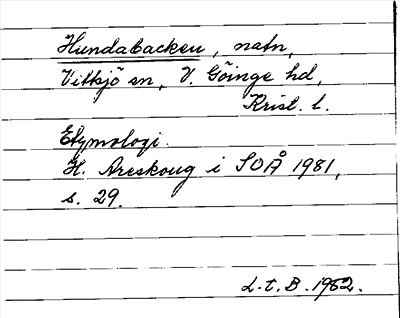 Hundabacken, natn,
Vitsjö sn, V. Göinge hd,
Krist. l.
Etymologi.
H. Areskoug i SOÅ 1981,
s. 29.
L.t.B. 1982.